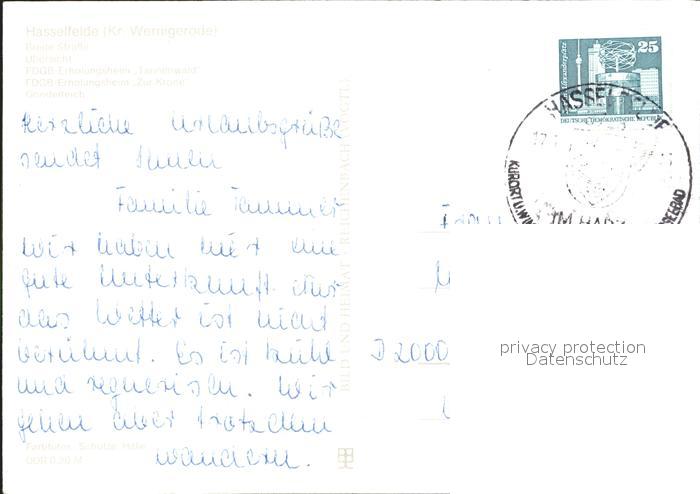 Hasselfelde (Kr. Wernigerode)
Breite Straße
Übersicht
FDGB-Erholungsheim „Tannenwald"
FDGB-Erholungsheim „Zur Krone"
Gondelteich
Herzliche Urlaubsgrüße
sendet Ihnen
Familie Tammer
Wir haben hier eine
gute Unterkunft. Nur
das Wetter ist nicht
berühmt. Es ist kühl
und regnerisch. Wir
gehen aber trotzdem
wandern.
Farbfotos: Schulze, Halle
DDR 0,20 M
BILD UND HEIMAT · REICHENBACH (VOGTL)
25
Alexanderplatz
DEUTSCHE DEMOKRATISCHE REPUBLIK
HASSELFELDE
17.
KURORT U. WIN
IM HARZ
Frau
D 2000
privacy protection
Datenschutz